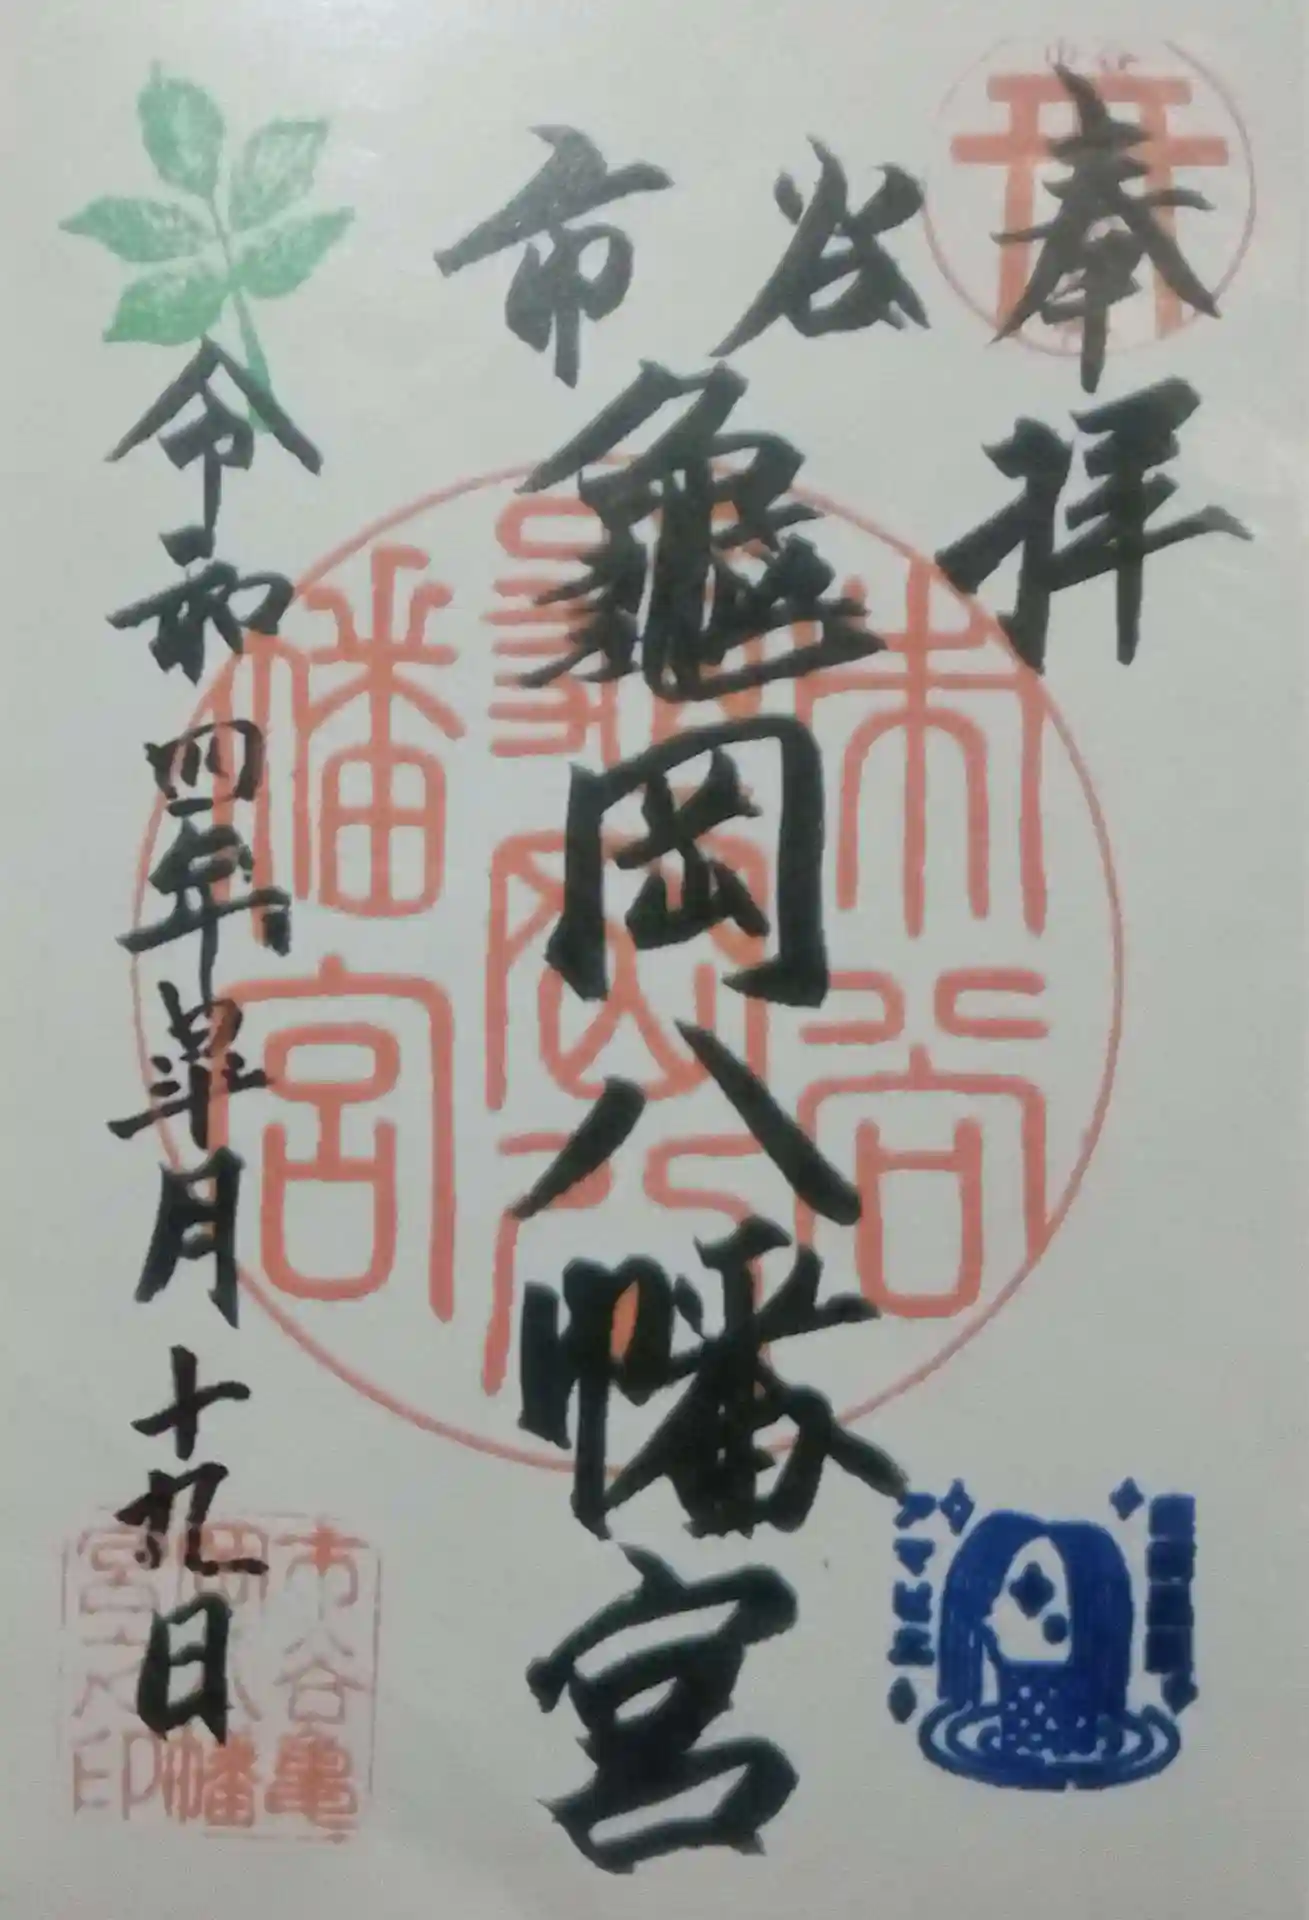 奉拝
市谷
龜岡八幡宮
令和四年皐月十九日
市谷
龜岡八
幡宮
市谷亀
岡八幡
宮之印